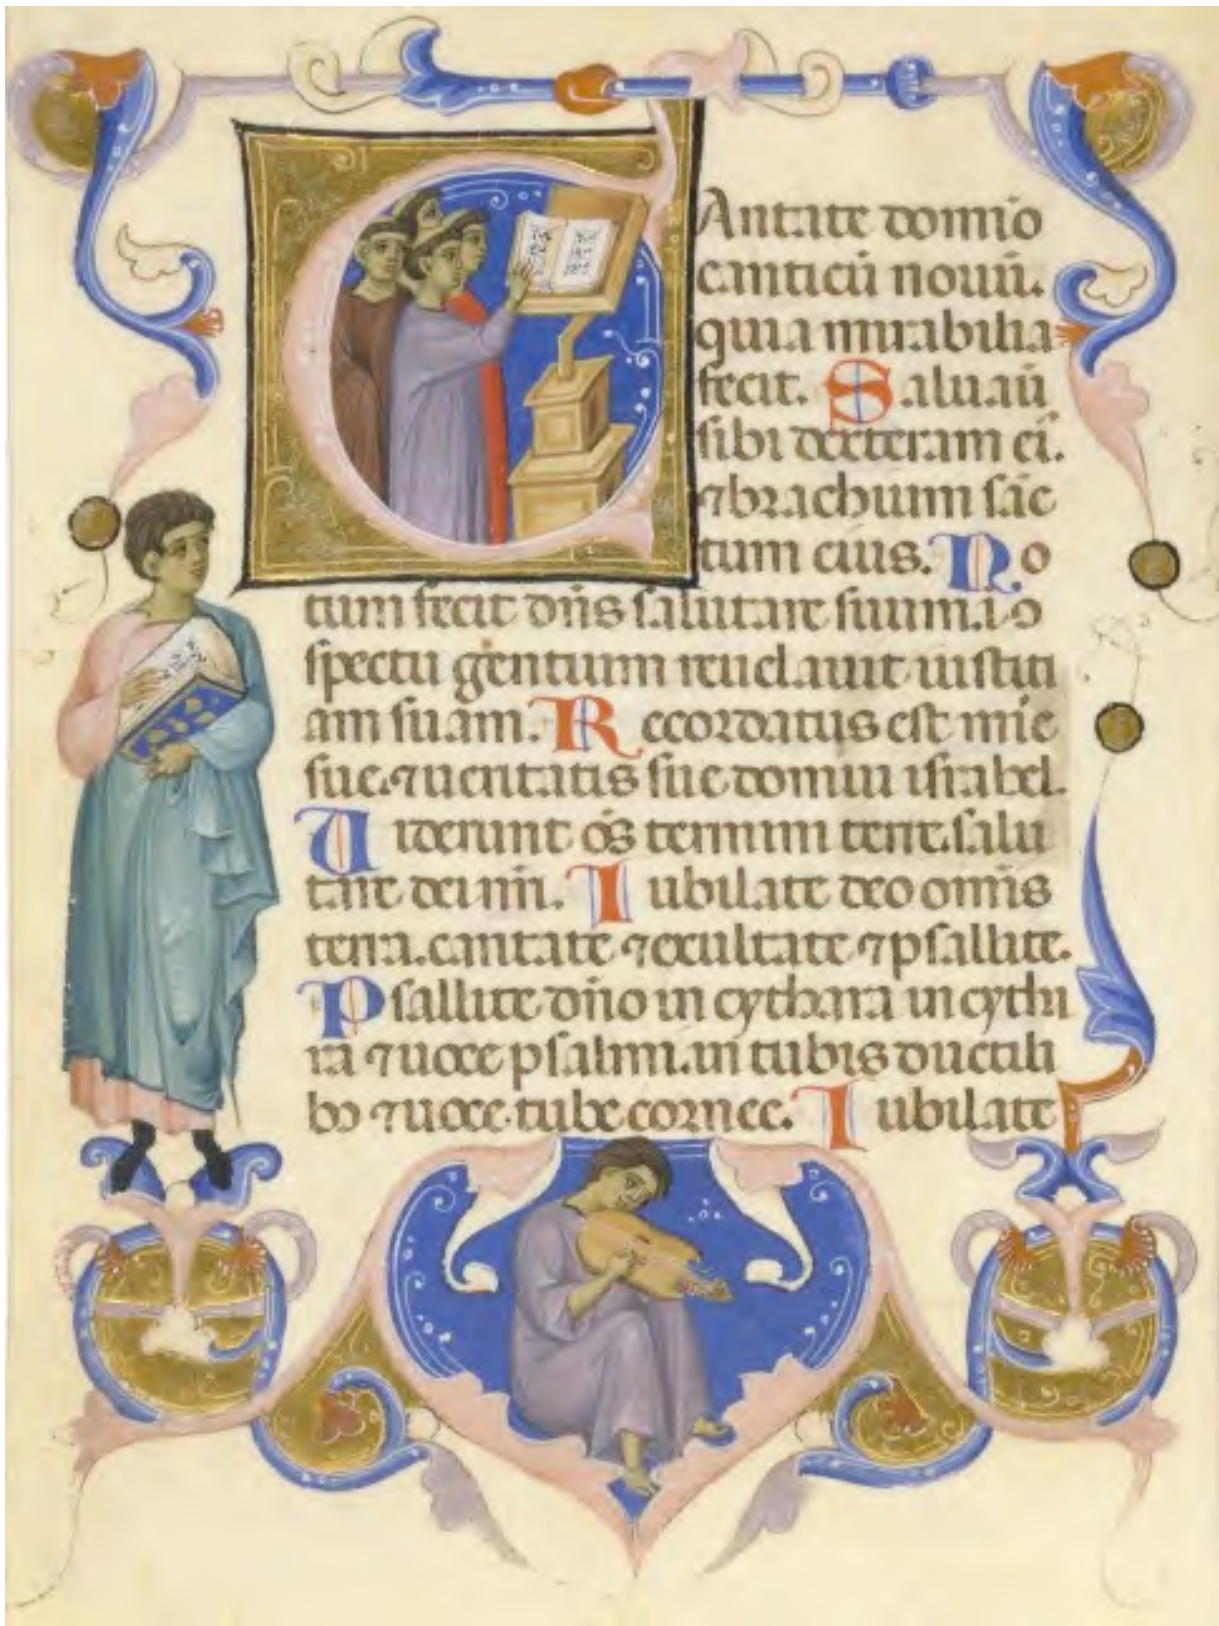 CAntate domīo
canticū nouū.
quia mirabilia
fecit. Saluaū
sibi dexteram eī.
⁊brachium sāc
tum eius. No
tum fecit dn̄s salutare suum.i ↄ
spectu gentium reuelauit iustiti
am suam. Recordatus est mīe
sue.⁊ueritatis sue domui israhel.
Uiderunt ōs termini terre.salu
tare dei nr̄i. Iubilate deo omīs
terra.cantate ⁊exultate ⁊psallite.
Psallite dn̄o in cythara in cytha
ra ⁊uoce psalmi.in tubis ductili
bꝰ ⁊uoce tube cornee. Iubilate